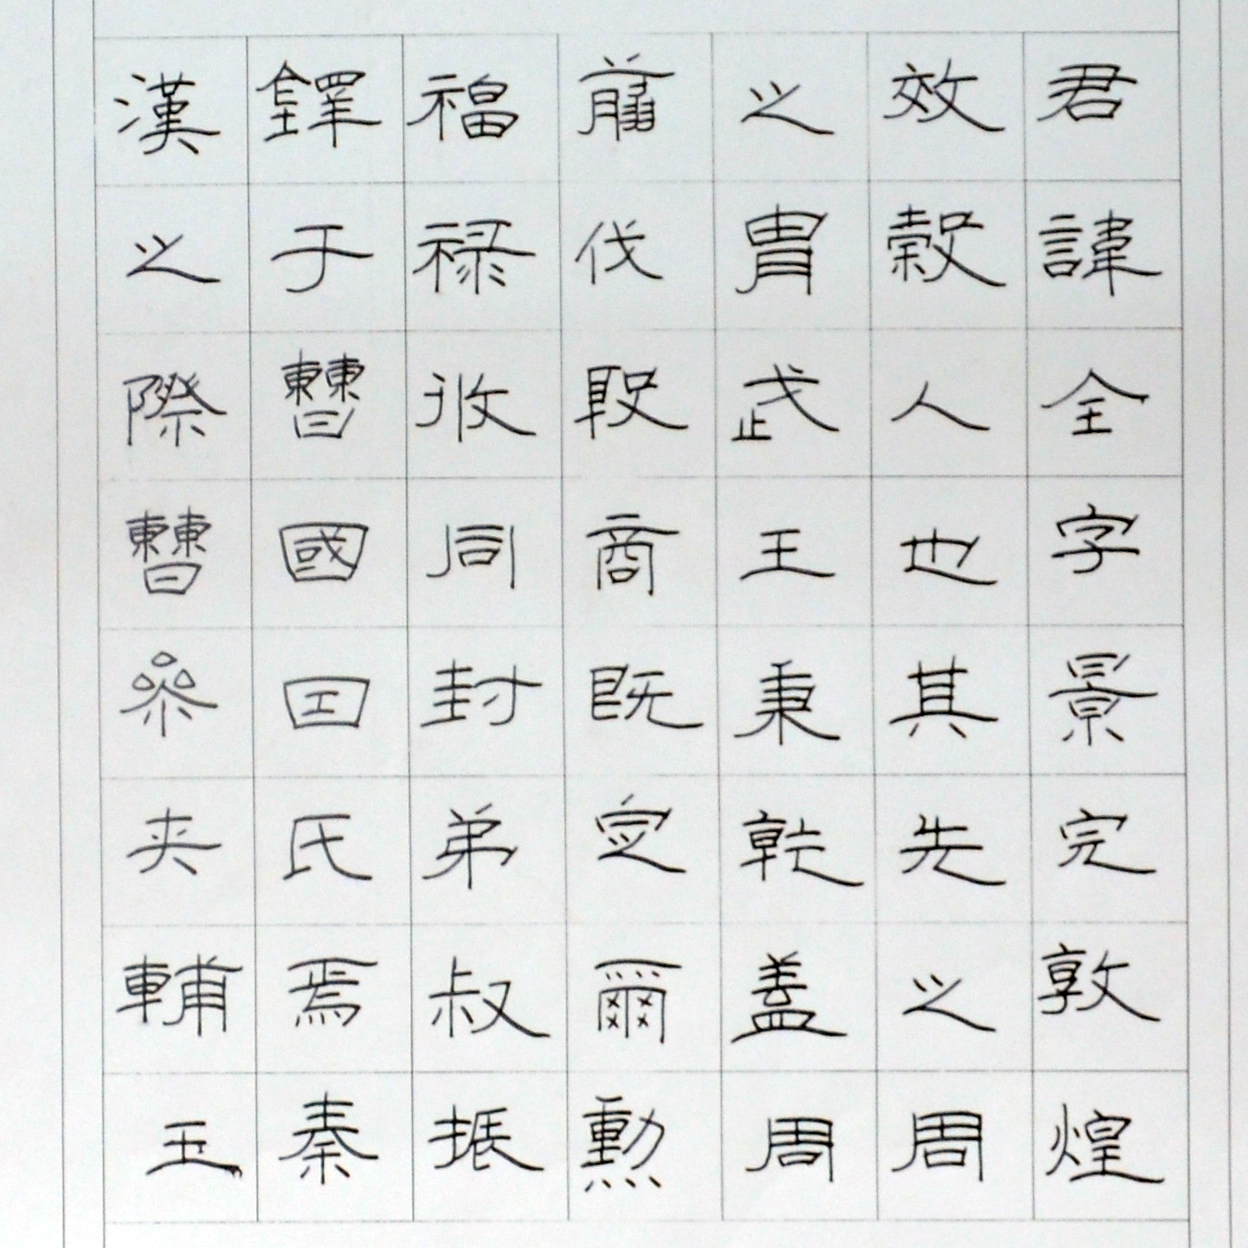 君諱全字景完敦煌
效穀人也其先之周
之胄武王秉乾盖周
翦伐殷商既定爾勳
福禄攸同封弟叔振
鐸于曹國因氏焉秦
漢之際曹參夹輔王